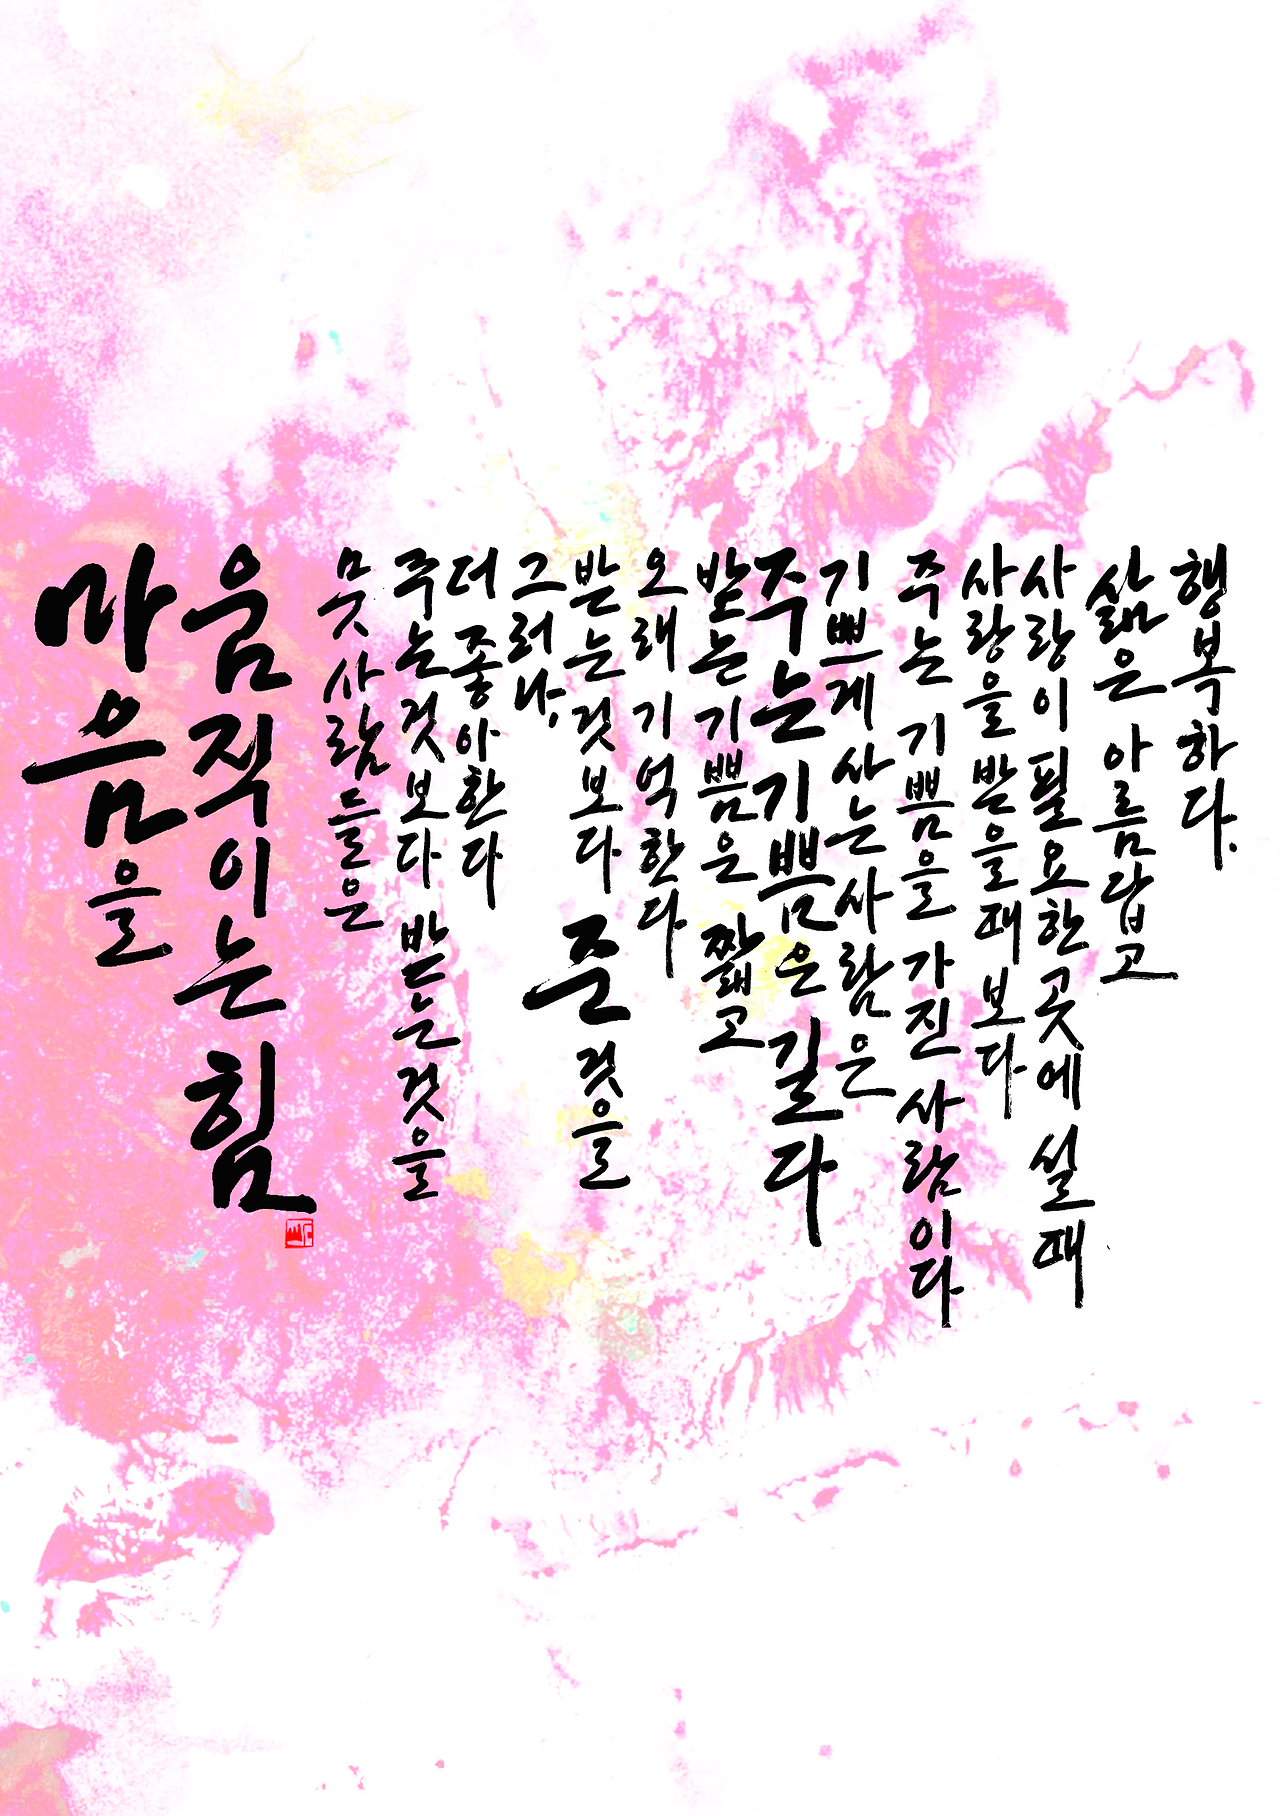 마음을
움직이는 힘
뭇 사람들은
주는것보다 받는것을
더 좋아한다
그러나,
받는것보다 준 것을
오래 기억한다
받는 기쁨은 짧고
주는 기쁨은 길다
기쁘게 사는 사람은
주는 기쁨을 가진 사람이다
사랑을 받을때보다
사랑이 필요한 곳에 설때
삶은 아름답고
행복하다.